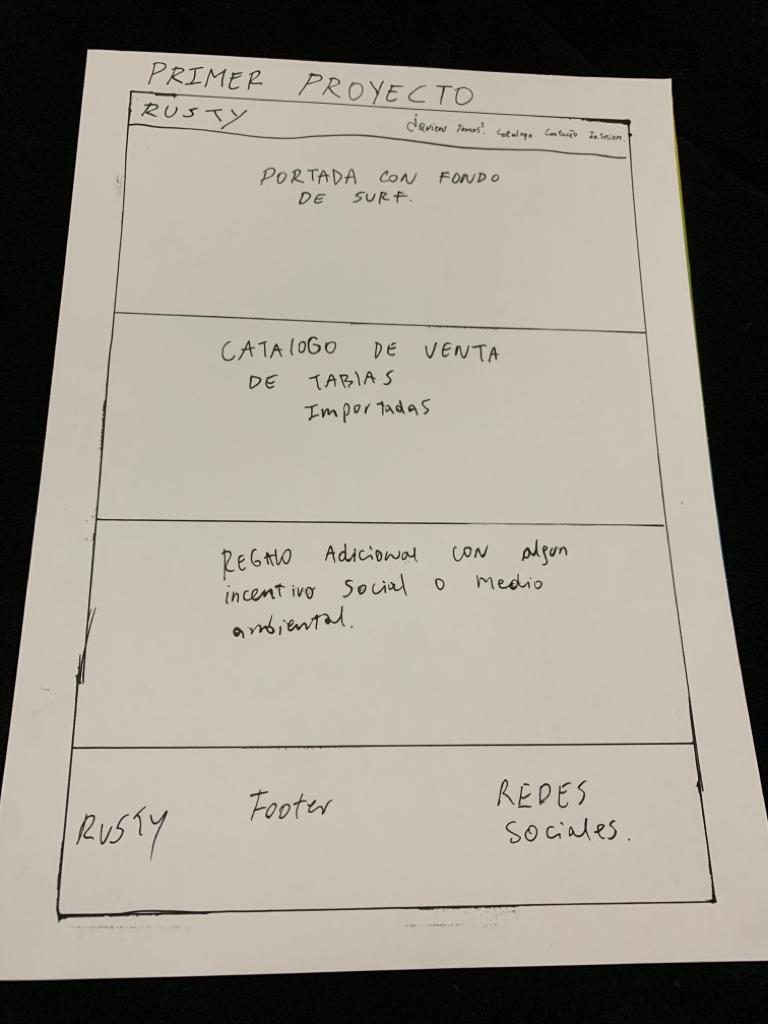 PRIMER PROYECTO
RUSTY
¿Quienes somos? Catalogo Contacto In. Sesion.
PORTADA CON FONDO
DE SURF.
CATALOGO DE VENTA
DE TABLAS
Importadas
REGALO Adicional CON algun
incentivo Social o Medio
ambiental.
RUSTY
Footer
REDES
Sociales.